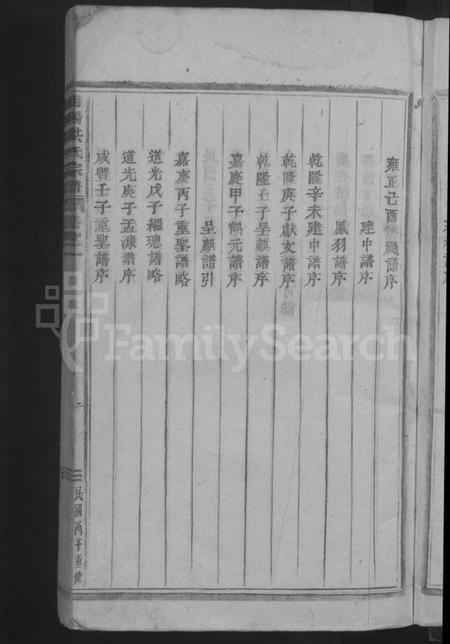 雍正己酉 鳳譜序
建中譜序
鳳羽譜序
乾隆辛未建中譜序
乾隆庚子獻文譜序
乾隆壬子呈麒譜序
嘉慶甲子鶴元譜序
呈麒譜引
嘉慶丙子重聖譜略
道光戊子繼璁譜略
道光庚子孟漮譜序
咸豐壬子重聖譜序
陽洪氏宗譜 卷之一
二
民國丙子重修
FamilySearch